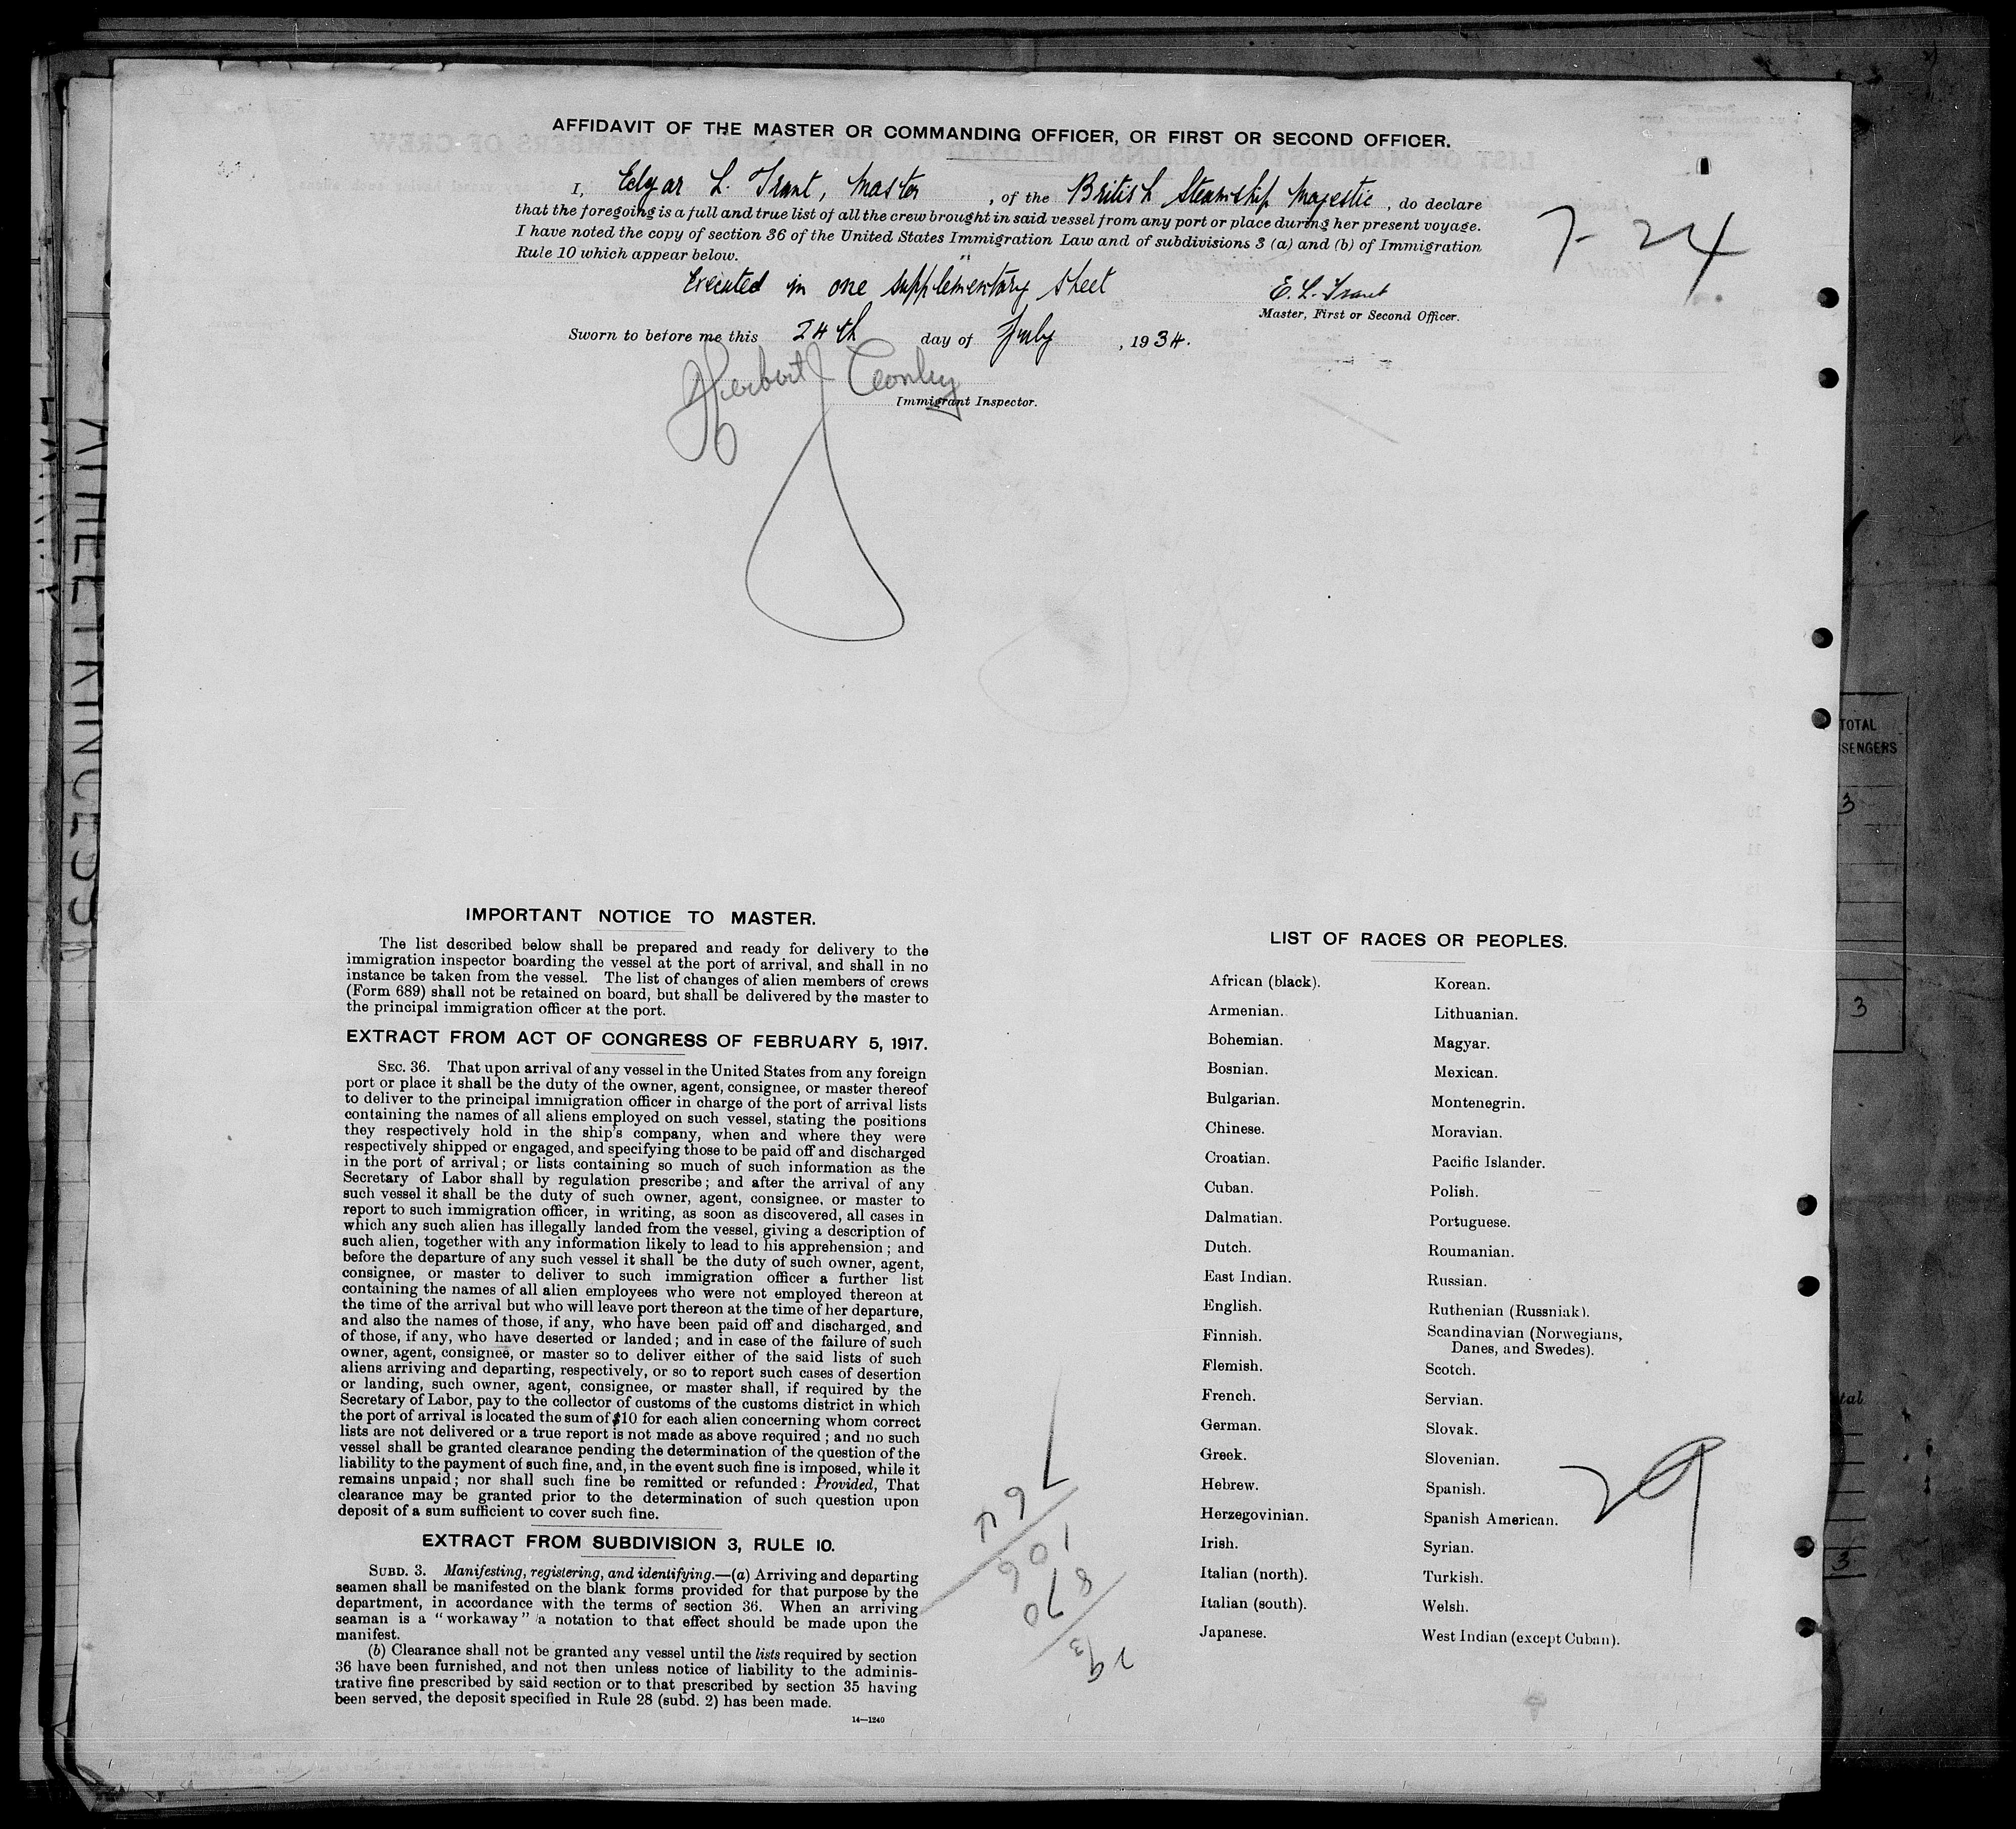 AFFIDAVIT OF THE MASTER OR COMMANDING OFFICER, OR FIRST OR SECOND OFFICER.
I, Edgar L. Trant, Master, of the British Steamship Majestic, do declare
that the foregoing is a full and true list of all the crew brought in said vessel from any port or place during her present voyage.
I have noted the copy of section 36 of the United States Immigration Law and of subdivisions 3 (a) and (b) of Immigration
Rule 10 which appear below.
7-24
Executed in one supplementary sheet
E. L. Trant
Master, First or Second Officer.
Sworn to before me this 24th day of July, 1934.
Herbert J Conley
Immigrant Inspector.
IMPORTANT NOTICE TO MASTER.
The list described below shall be prepared and ready for delivery to the
immigration inspector boarding the vessel at the port of arrival, and shall in no
instance be taken from the vessel. The list of changes of alien members of crews
(Form 689) shall not be retained on board, but shall be delivered by the master to
the principal immigration officer at the port.
EXTRACT FROM ACT OF CONGRESS OF FEBRUARY 5, 1917.
SEC. 36. That upon arrival of any vessel in the United States from any foreign
port or place it shall be the duty of the owner, agent, consignee, or master thereof
to deliver to the principal immigration officer in charge of the port of arrival lists
containing the names of all aliens employed on such vessel, stating the positions
they respectively hold in the ship's company, when and where they were
respectively shipped or engaged, and specifying those to be paid off and discharged
in the port of arrival; or lists containing so much of such information as the
Secretary of Labor shall by regulation prescribe; and after the arrival of any
such vessel it shall be the duty of such owner, agent, consignee, or master to
report to such immigration officer, in writing, as soon as discovered, all cases in
which any such alien has illegally landed from the vessel, giving a description of
such alien, together with any information likely to lead to his apprehension; and
before the departure of any such vessel it shall be the duty of such owner, agent,
consignee, or master to deliver to such immigration officer a further list
containing the names of all alien employees who were not employed thereon at
the time of the arrival but who will leave port thereon at the time of her departure,
and also the names of those, if any, who have been paid off and discharged, and
of those, if any, who have deserted or landed; and in case of the failure of such
owner, agent, consignee, or master so to deliver either of the said lists of such
aliens arriving and departing, respectively, or so to report such cases of desertion
or landing, such owner, agent, consignee, or master shall, if required by the
Secretary of Labor, pay to the collector of customs of the customs district in which
the port of arrival is located the sum of $10 for each alien concerning whom correct
lists are not delivered or a true report is not made as above required; and no such
vessel shall be granted clearance pending the determination of the question of the
liability to the payment of such fine, and, in the event such fine is imposed, while it
remains unpaid; nor shall such fine be remitted or refunded: Provided, That
clearance may be granted prior to the determination of such question upon
deposit of a sum sufficient to cover such fine.
EXTRACT FROM SUBDIVISION 3, RULE 10.
SUBD. 3. Manifesting, registering, and identifying.—(a) Arriving and departing
seamen shall be manifested on the blank forms provided for that purpose by the
department, in accordance with the terms of section 36. When an arriving
seaman is a "workaway" a notation to that effect should be made upon the
manifest.
(b) Clearance shall not be granted any vessel until the lists required by section
36 have been furnished, and not then unless notice of liability to the adminis-
trative fine prescribed by said section or to that prescribed by section 35 having
been served, the deposit specified in Rule 28 (subd. 2) has been made.
14—1240
LIST OF RACES OR PEOPLES.
African (black).
Armenian.
Bohemian.
Bosnian.
Bulgarian.
Chinese.
Croatian.
Cuban.
Dalmatian.
Dutch.
East Indian.
English.
Finnish.
Flemish.
French.
German.
Greek.
Hebrew.
Herzegovinian.
Irish.
Italian (north).
Italian (south).
Japanese.
Korean.
Lithuanian.
Magyar.
Mexican.
Montenegrin.
Moravian.
Pacific Islander.
Polish.
Portuguese.
Roumanian.
Russian.
Ruthenian (Russniak).
Scandinavian (Norwegians,
Danes, and Swedes).
Scotch.
Servian.
Slovak.
Slovenian.
Spanish.
Spanish American.
Syrian.
Turkish.
Welsh.
West Indian (except Cuban).
29
TOTAL
SENGERS
3
3
tal
3